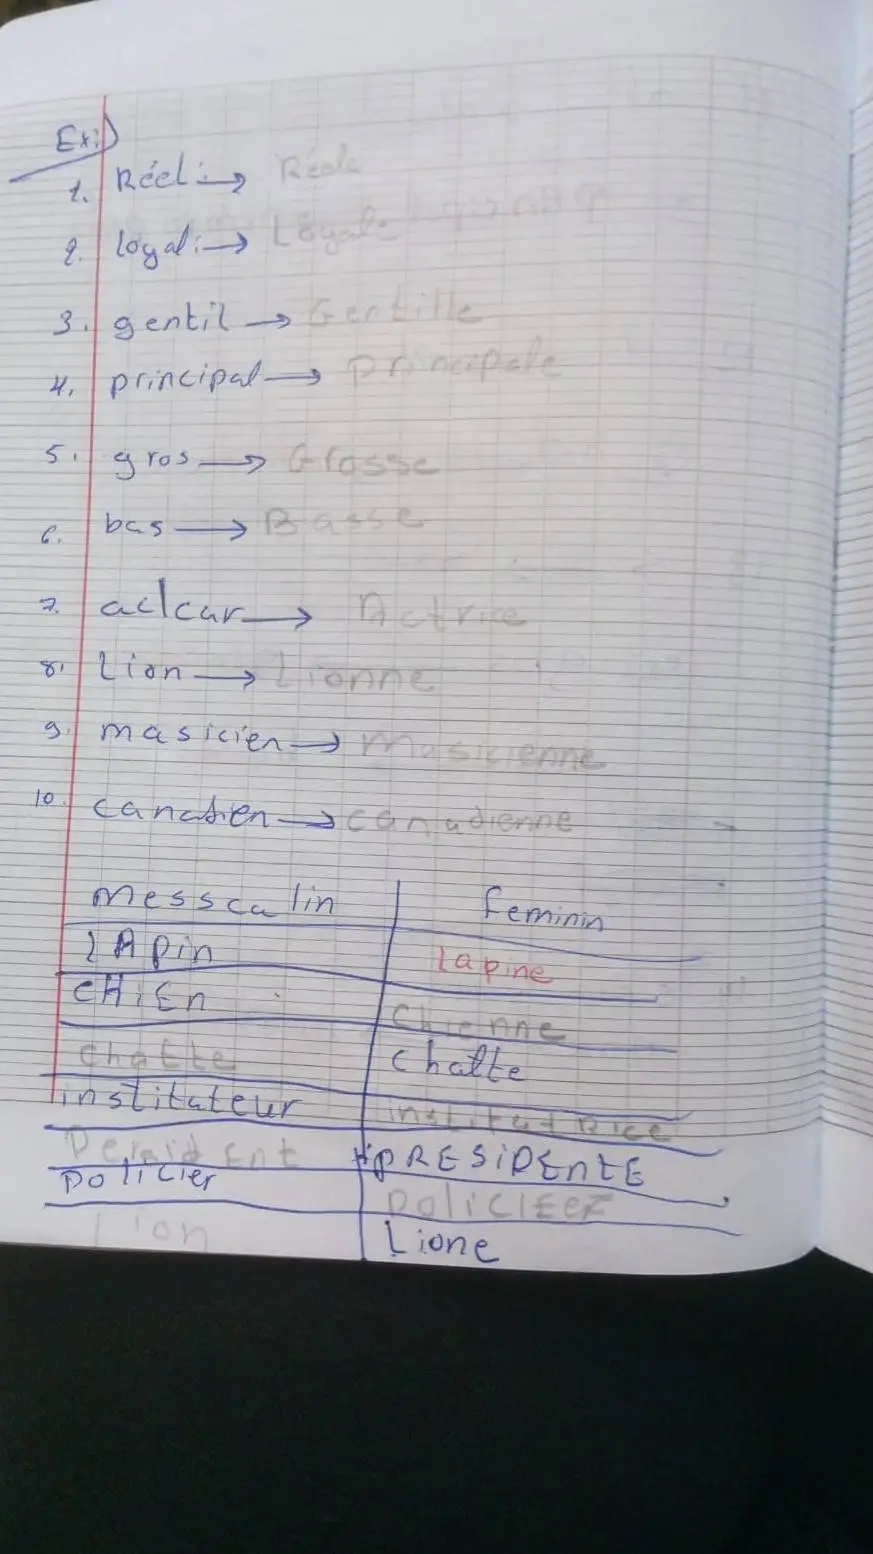 Ex:)
1. Réel: → Réele
2. loyal: → Loyale
3. gentil → Gentille
4. principal → principale
5. gros → Grosse
6. bas → Basse
7. aclcur → Actrice
8. Lion → Lionne
9. masicien → musicienne
10. canadien → canadienne
Messcalin feminin
lApin lapine
CHiEn Chienne
chatte chatte
institateur institutRice
PRESiDEntE
policier
lion Lione